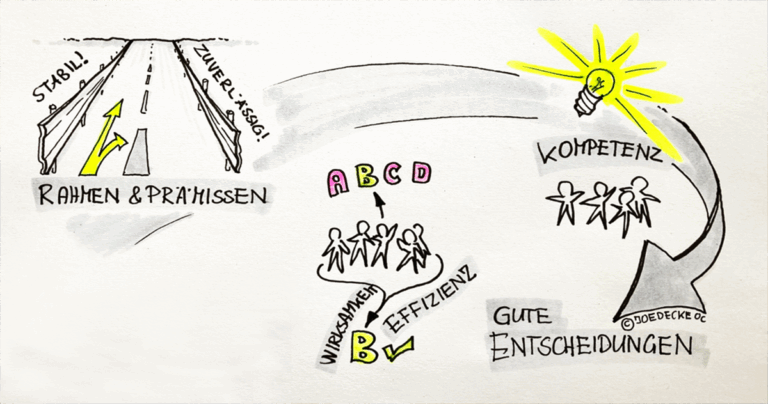 STABIL!
ZUVERLÄSSIG!
RAHMEN & PRÄMISSEN
KOMPETENZ
A B C D
WIRKSAMKEIT
EFFIZIENZ
B
GUTE
ENTSCHEIDUNGEN
© JOEDECKE OC